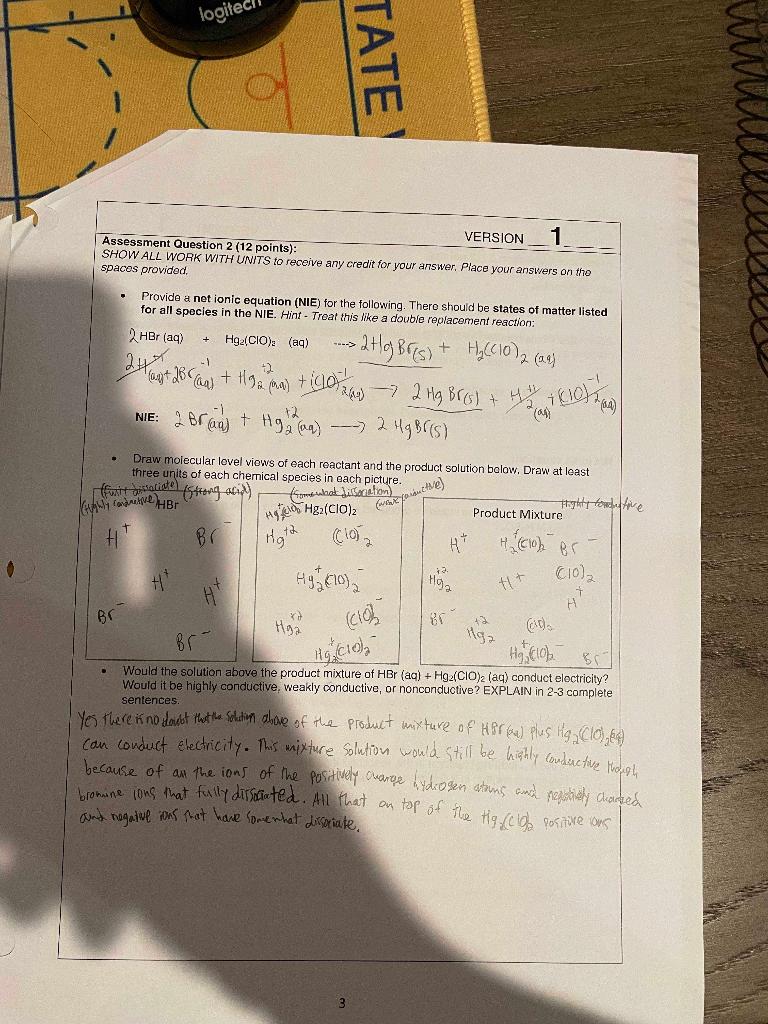 logitech
TATE
VERSION 1
Assessment Question 2 (12 points):
SHOW ALL WORK WITH UNITS to receive any credit for your answer. Place your answers on the
spaces provided.
• Provide a net ionic equation (NIE) for the following. There should be states of matter listed
for all species in the NIE. Hint - Treat this like a double replacement reaction:
2HBr (aq) + Hg₂(ClO)₂ (aq) ----> 2HgBr(s) + H₂(ClO)₂ (aq)
2H⁺¹(aq) + 2Br⁻¹(aq) + Hg₂⁺²(aq) + (ClO)⁻¹₂(aq) → 2HgBr(s) + H₂⁺¹(aq) + (ClO)⁻¹₂(aq)
NIE: 2Br⁻¹(aq) + Hg₂⁺²(aq) → 2HgBr(s)
• Draw molecular level views of each reactant and the product solution below. Draw at least
three units of each chemical species in each picture.
(Fully dissociate) (Strong acid) (Somewhat dissociation) (weak conductive)
(Highly conductive) HBr Hg₂(ClO)₂ Product Mixture Highly conductive
H⁺ Br⁻ Hg⁺² (ClO)⁻₂ H⁺ H₂⁺(ClO)₂⁻ Br⁻
H⁺ H⁺ Hg₂⁺(ClO)₂⁻ Hg₂⁺² H⁺ (ClO)₂ H⁺
Br⁻ Hg₂⁺² (ClO)₂⁻ Br⁻ Hg₂⁺² (ClO)₂
Br⁻ Hg₂⁺(ClO)₂⁻ Hg₂⁺(ClO)₂⁻ Br⁻
• Would the solution above the product mixture of HBr (aq) + Hg₂(ClO)₂ (aq) conduct electricity?
Would it be highly conductive, weakly conductive, or nonconductive? EXPLAIN in 2-3 complete
sentences.
Yes there is no doubt that the solution above of the product mixture of HBr(aq) plus Hg₂(ClO)₂(aq)
can conduct electricity. This mixture solution would still be highly conductive though
because of all the ions of the positively charge hydrogen atoms and negatively charged
bromine ions that fully dissociated. All that on top of the Hg₂(ClO)₂ positive ions
and negative ions that have somewhat dissociate.
3